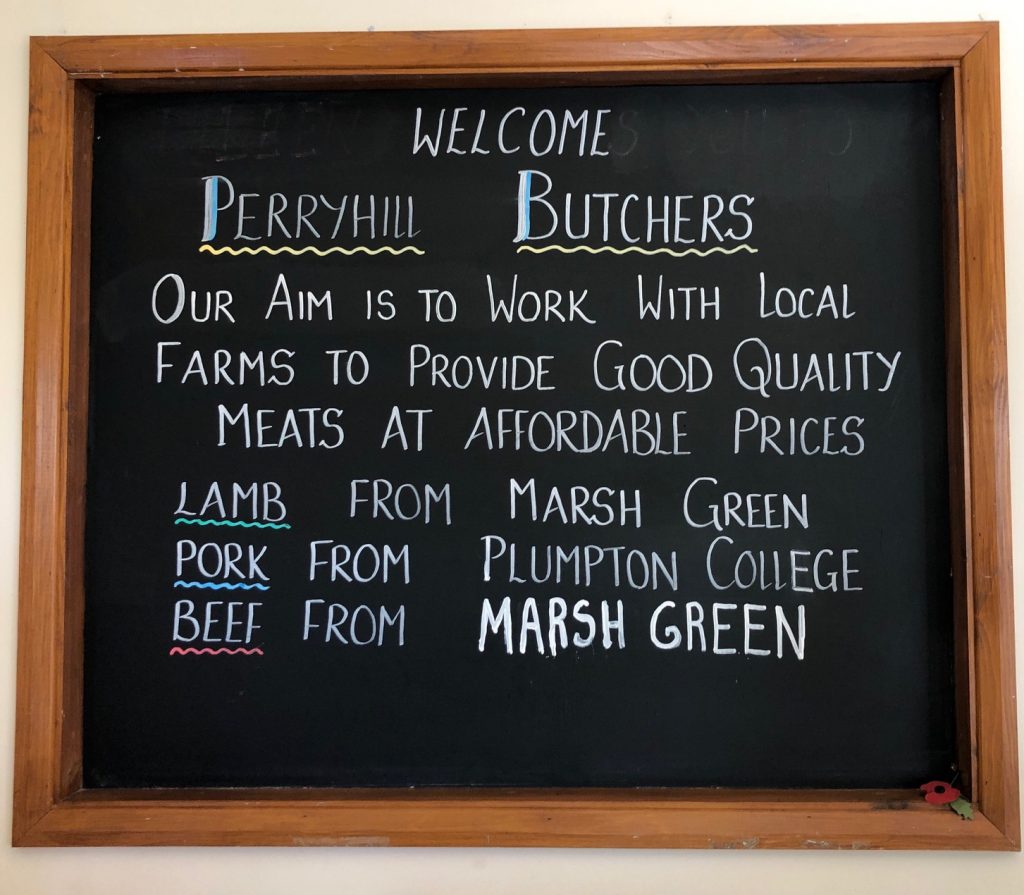 WELCOME
PERRYHILL BUTCHERS
OUR AIM IS TO WORK WITH LOCAL
FARMS TO PROVIDE GOOD QUALITY
MEATS AT AFFORDABLE PRICES
LAMB FROM MARSH GREEN
PORK FROM PLUMPTON COLLEGE
BEEF FROM MARSH GREEN